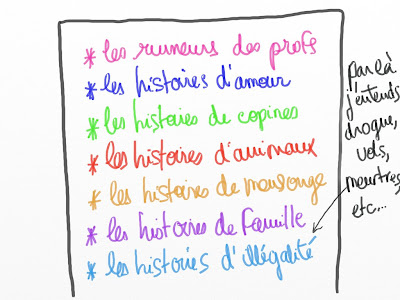 * les rumeurs des profs
* les histoires d'amour
* les histoires de copines
* les histoires d'animaux
* les histoires de mensonge
* les histoires de famille
* les histoires d'illégalité
par là
j'entends
drogue,
vols,
meurtres,
etc...